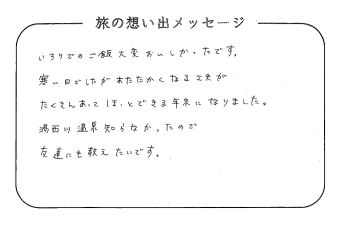 旅の想い出メッセージ
いろりでのご飯大変おいしかったです。
寒い日でしたがあたたかくなる工夫が
たくさんあってほっとできる年末になりました。
湯西川温泉知らなかったので
友達にも教えたいです。